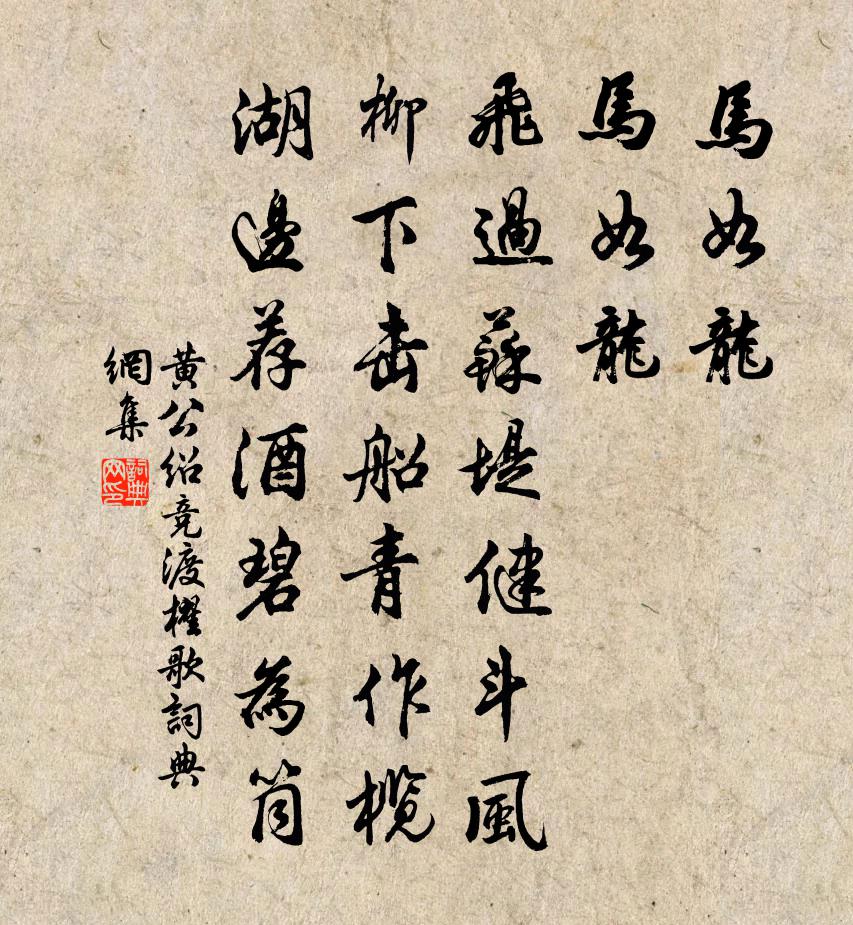 馬如龍
馬如龍
飛過蘇堤健斗風
柳下击船青作榄
湖邊荐酒碧為筒
黄公绍竞渡櫂歌詞典
網集
詞典
网印